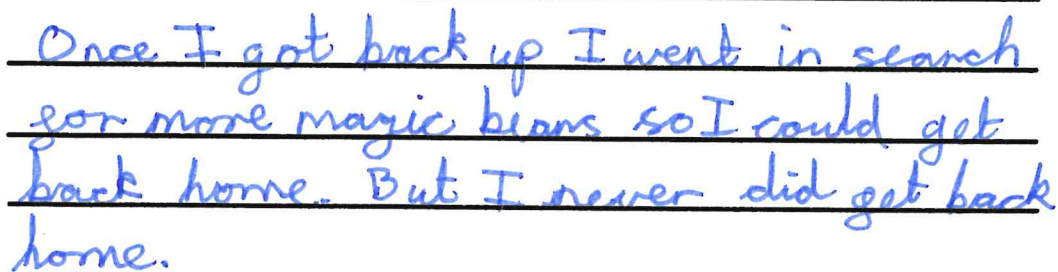 Once I got back up I went in search
for more magic beans so I could get
back home. But I never did get back
home.